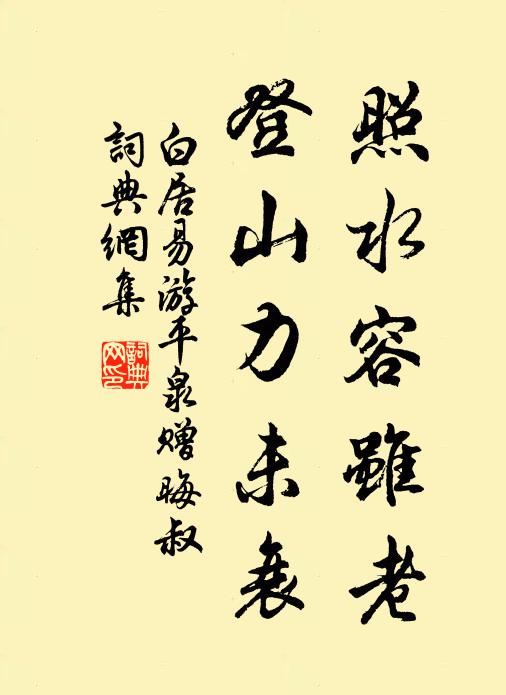 照水容雖老
登山力未衰
白居易游平泉贈晦叔
詞典網集
詞典網印